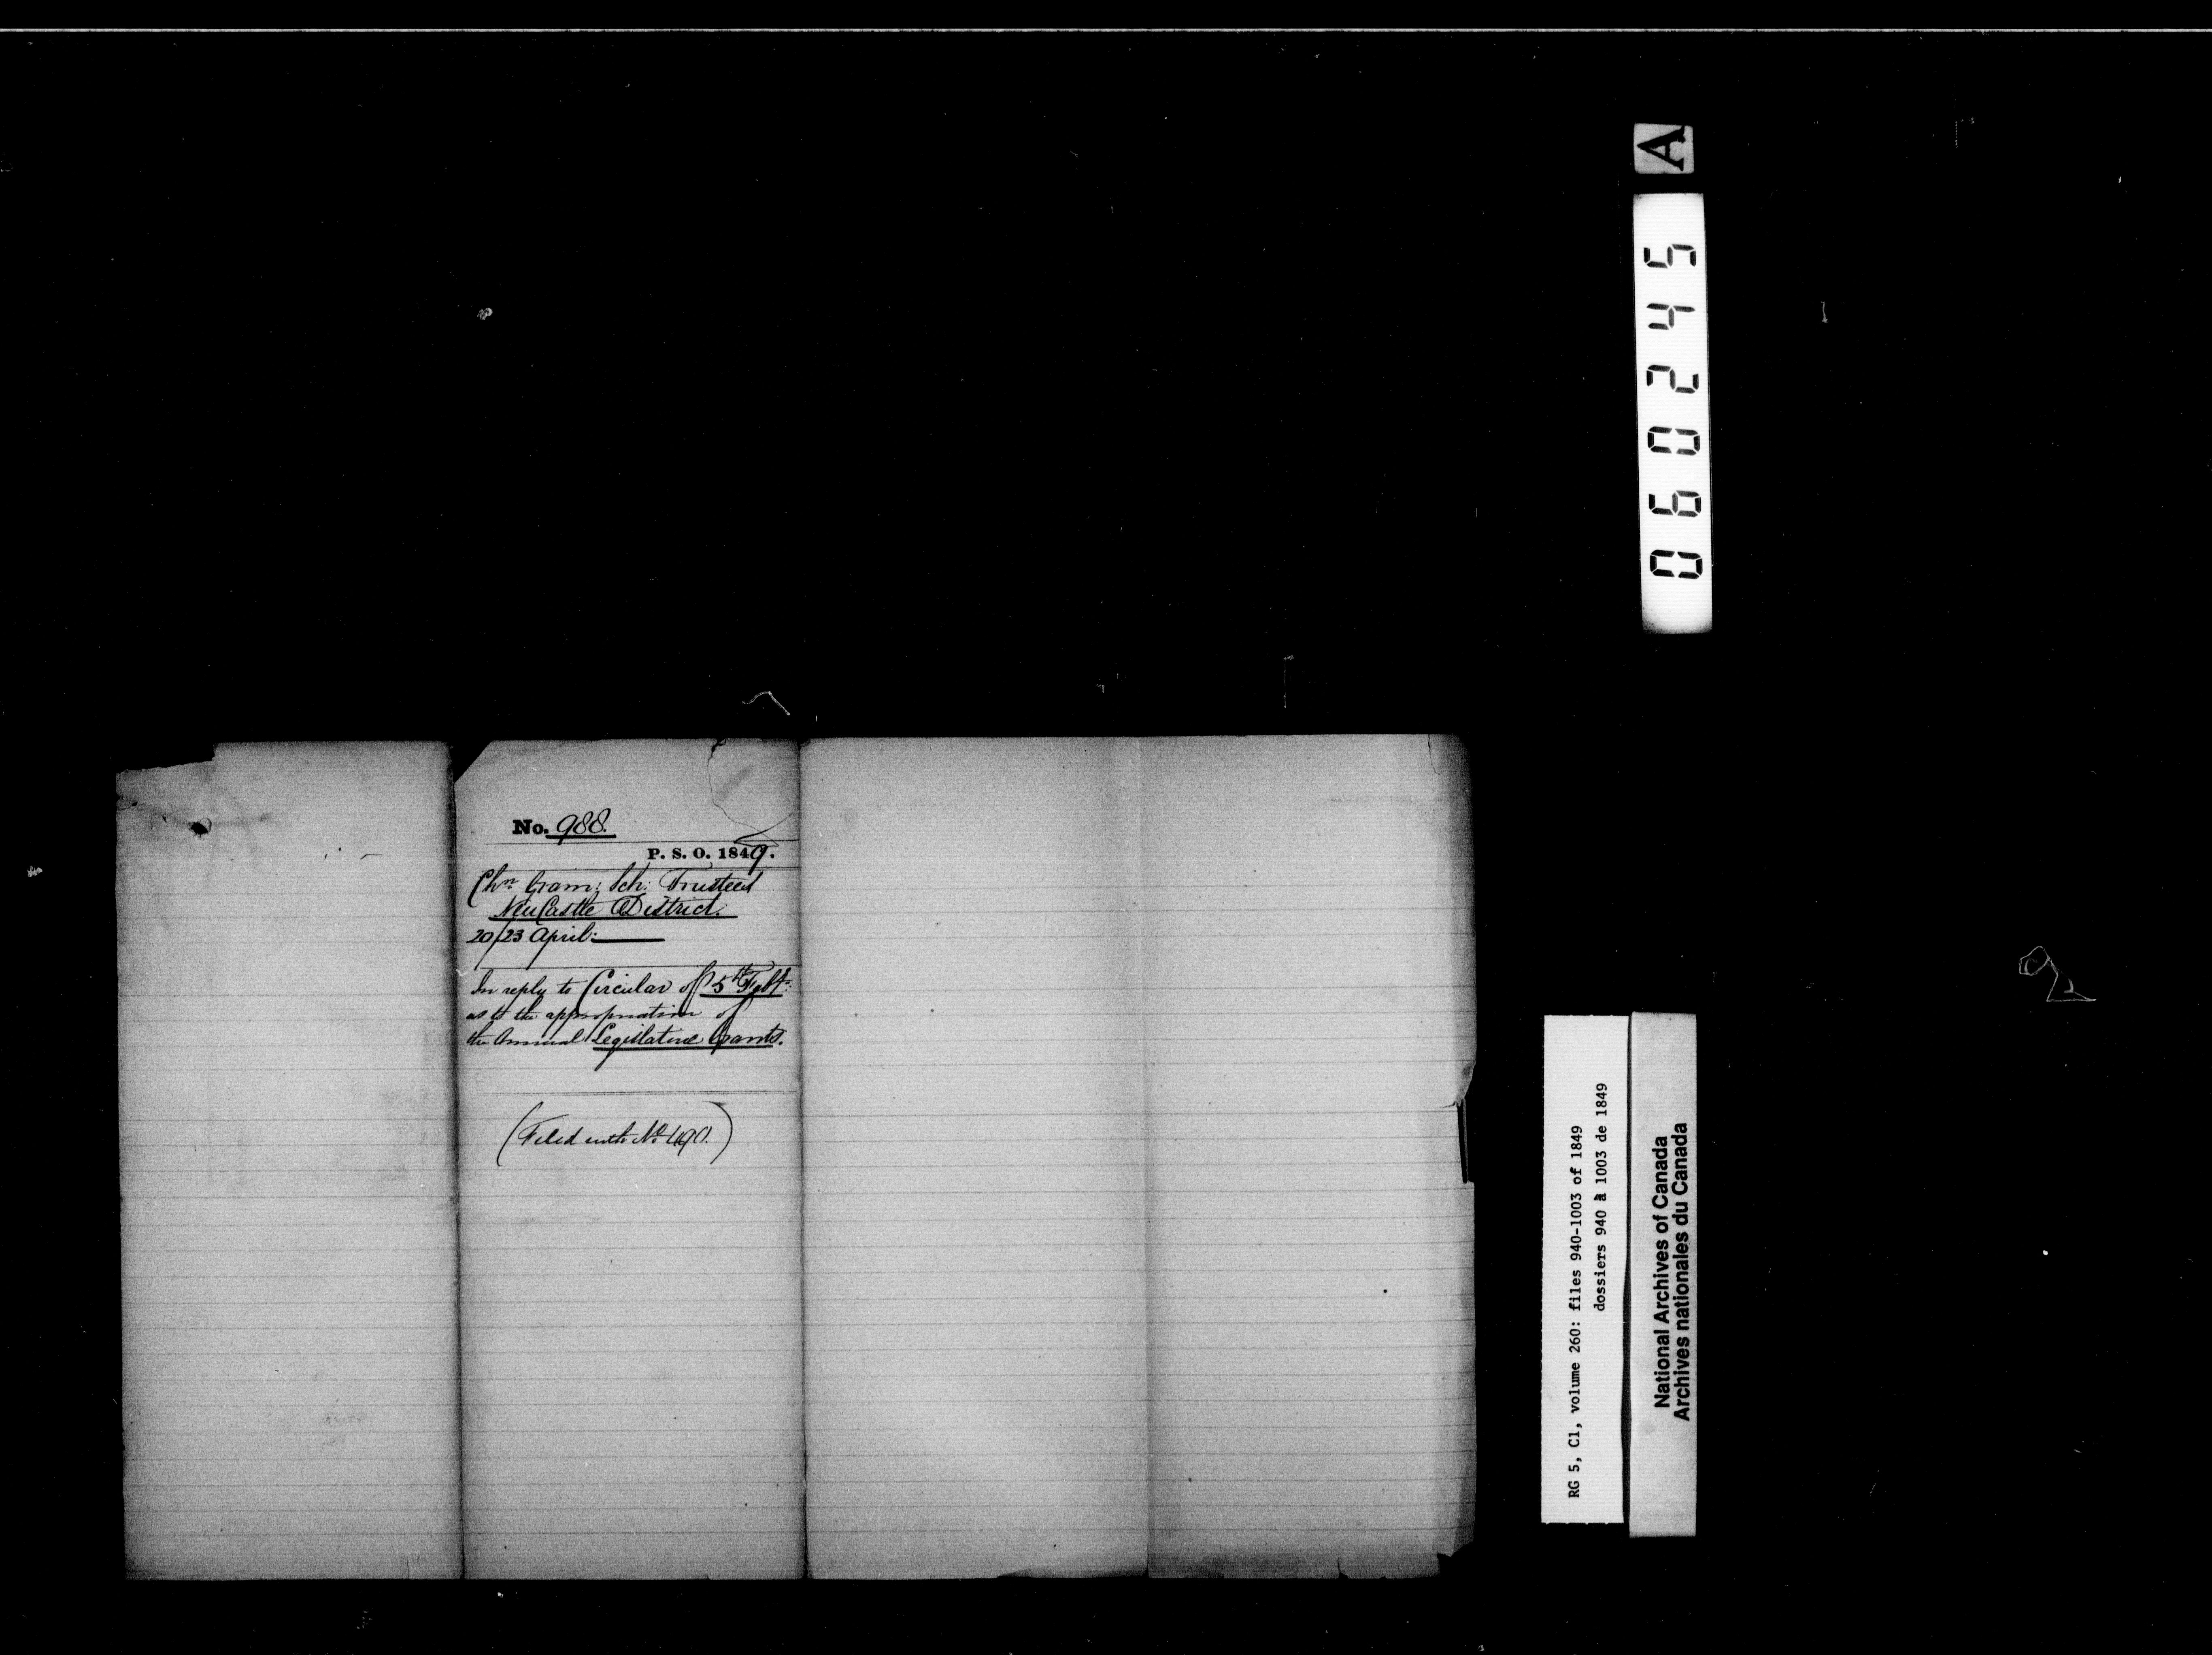 No. 988.
P. S. O. 1849.
Chn. Gram: Sch: Trustees
NewCastle District.
20/23 April:
In reply to Circular of 5th Feby:
as to the appropriation of
the Annual Legislative Grants.
(Filed with No 490.)
A
060245
RG 5, C1, volume 260: files 940-1003 of 1849
dossiers 940 à 1003 de 1849
National Archives of Canada
Archives nationales du Canada